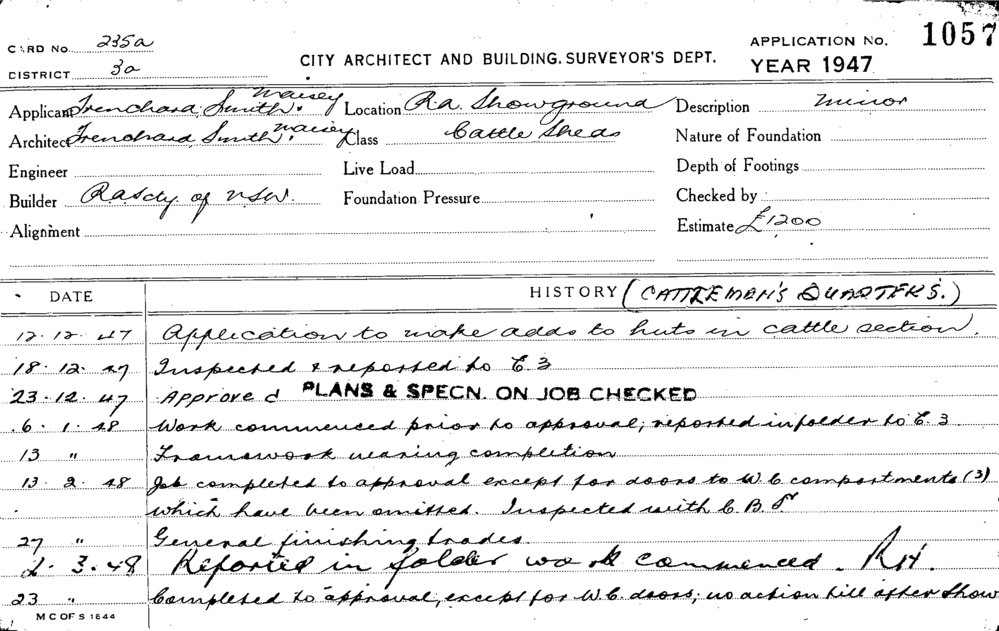 CARD No. 235a
DISTRICT 3a
CITY ARCHITECT AND BUILDING SURVEYOR'S DEPT.
APPLICATION No. 1057
YEAR 1947
Applicant Trenchard Smith & Maisey Location Ra. Showground Description Minor
Architect Trenchard Smith & Maisey Class Cattle Sheds Nature of Foundation
Engineer Live Load Depth of Footings
Builder RAScty. of NSW. Foundation Pressure Checked by
Alignment Estimate £1200
DATE HISTORY (CATTLEMEN'S QUARTERS.)
12.12.47 Application to make adds to huts in cattle section.
18.12.47 Inspected & reported to C3
23.12.47 Approved PLANS & SPECN. ON JOB CHECKED
6.1.48 Work commenced prior to approval; reported in folder to C.3.
13 " Framework nearing completion
13.2.48 Job completed to approval except for doors to W.C compartments (3)
which have been omitted. Inspected with C.B.
27 " General finishing trades.
2.3.48 Reported in folder work commenced. RH.
23 " Completed to approval, except for W.C. doors; no action till after Show
M C OF S 1844